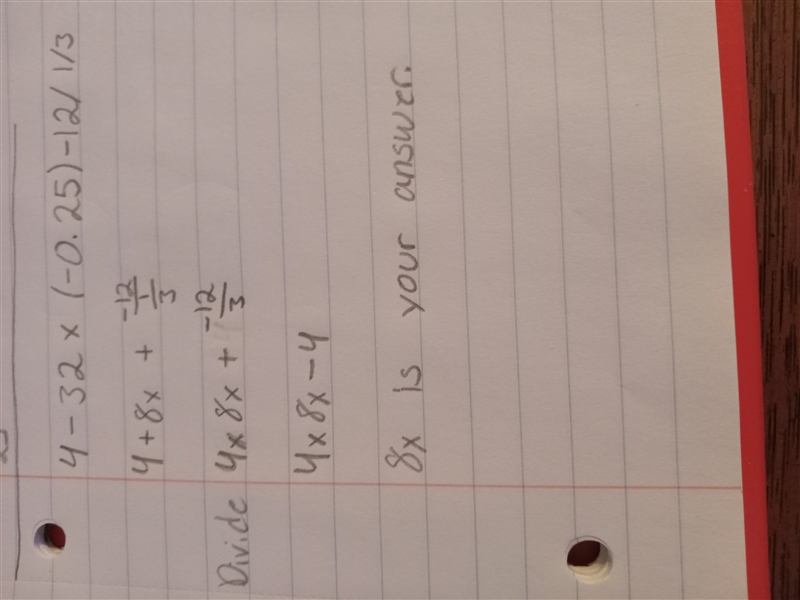 4-32x(-0.25)-12/1/3
4+8x + -12/1/3
Divide 4x8x + -12/3
4x8x-4
8x is your answer.